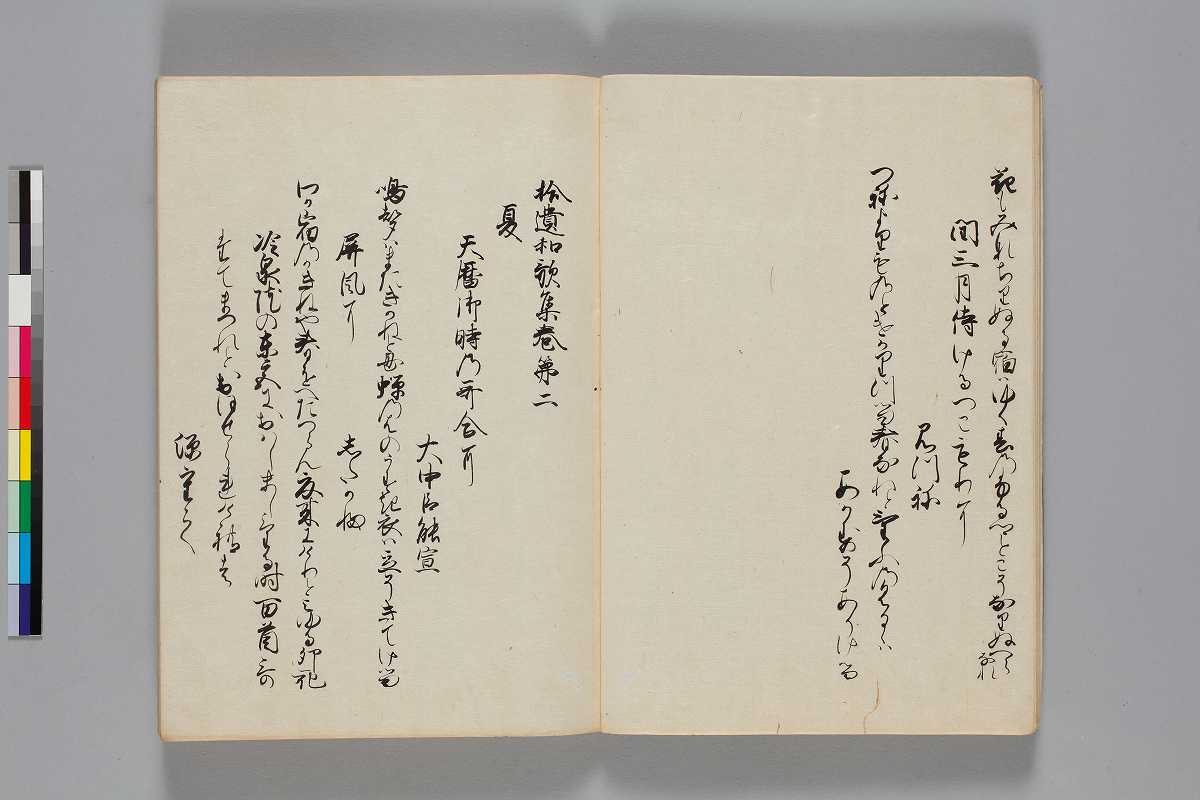 花もみなちりぬる宿はゆく春のふる里とこそなりぬへらなれ
閏三月侍けるつこもりに
みつね
つねよりものとけかりつる春なれとけふのくるゝは
あかすそありける
拾遺和歌集巻第二
夏
天暦御時の哥合に
大中臣能宣
鳴声はまたきかねとも蝉のはのうすき衣はたちそきてける
屏風に
したかふ
わか宿のかきねや春をへたつらん夏来にけりとみゆる卯花
冷泉院の東宮におはしましける時百首哥
たてまつれとおほせられけれは
源重之